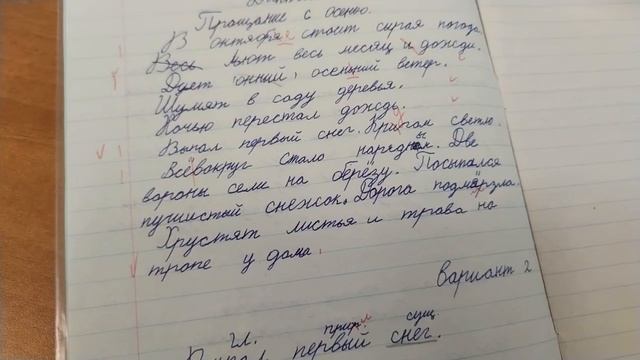 Прощание с осенью.
В октябре стоит сырая погода.
Весь льют весь месяц и дожди.
Дует осенний ветер.
Шумят в саду деревья.
Ночью перестал дождь.
Выпал первый снег. Кругом светло.
Всё вокруг стало нарядным. Две
вороны сели на берёзу. Посыпался
пушистый снежок. Дорога подмёрзла.
Хрустят листья и трава на
тропе у дома.
Вариант 2
гл. прил. сущ.
первый снег.